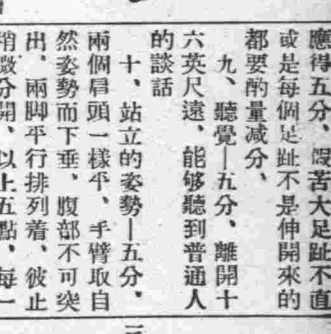 應得五分、假苦大足趾不直
或是每個足趾不是伸開來的
都要酌量减分、
九、聽覺—五分、離開十
六英尺遠、能够聽到普通人
的談話
十、站立的姿勢—五分、
兩個肩頭一樣平、手臂取自
然姿勢而下垂、腹部不可突
出、兩脚平行排列着、彼此
稍微分開、以上五點、每一